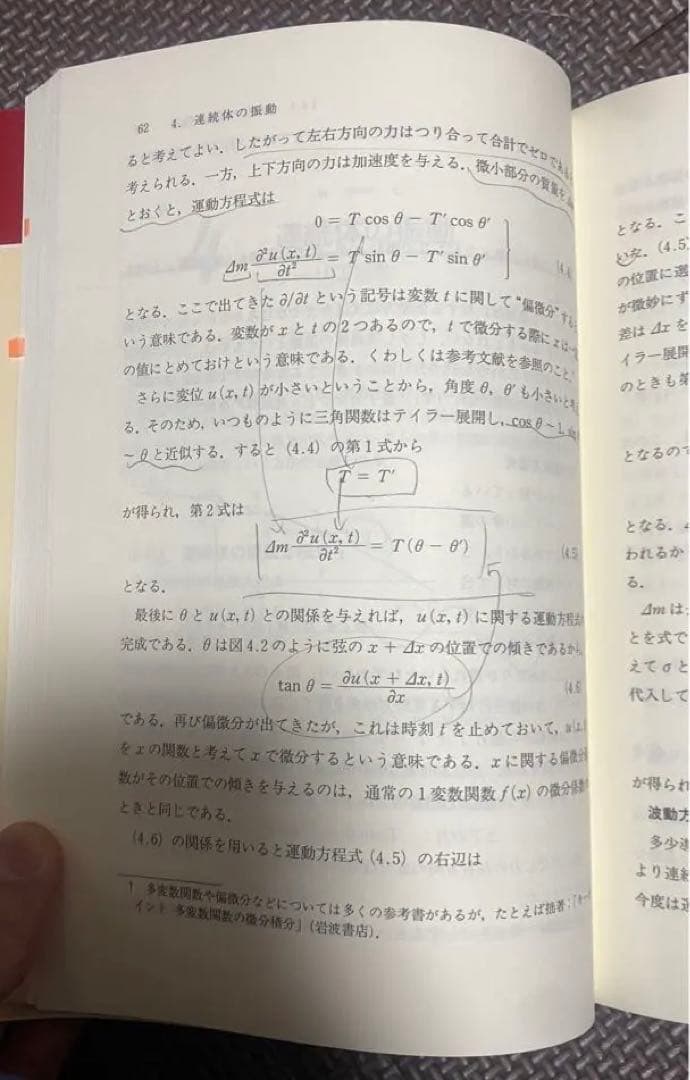 62 4. 連続体の振動
ると考えてよい．したがって左右方向の力はつり合って合計でゼロである
考えられる．一方，上下方向の力は加速度を与える．微小部分の質量を
とおくと，運動方程式は
0 = T cos θ − T′ cos θ′
Δm ∂²u(x, t)/∂t² = T sin θ − T′ sin θ′
(4.4
となる．ここで出てきた ∂/∂t という記号は変数 t に関して“偏微分”する
いう意味である．変数が x と t の2つあるので，t で微分する際に x は
の値にとめておけという意味である．くわしくは参考文献を参照のこと．
さらに変位 u(x, t) が小さいということから，角度 θ，θ′ も小さいと
る．そのため，いつものように三角関数はテイラー展開し，cos θ ~ 1, sin
~ θ と近似する．すると (4.4) の第1式から
T = T′
が得られ，第2式は
Δm ∂²u(x, t)/∂t² = T(θ − θ′)
(4.5
となる．
最後に θ と u(x, t) との関係を与えれば，u(x, t) に関する運動方程式
完成である．θ は図4.2のように弦の x + Δx の位置での傾きであるから
tan θ = ∂u(x + Δx, t)/∂x
(4.6
である．再び偏微分が出てきたが，これは時刻 t を止めておいて，u(x,
を x の関数と考えて x で微分するという意味である．x に関する偏微分
数がその位置での傾きを与えるのは，通常の1変数関数 f(x) の微分係数
ときと同じである．
(4.6) の関係を用いると運動方程式 (4.5) の右辺は
† 多変数関数や偏微分などについては多くの参考書があるが，たとえば拙著：「キー
イント 多変数関数の微分積分」（岩波書店）．
となる．こ
い．(4.5)
の位置に選
が微妙にず
差は Δx を
イラー展開
のときも第
となるので
となる．
われるか
る．
Δm は
とを式で
えて σ と
代入して
が得られ
波動方
多少
より連続
今度は